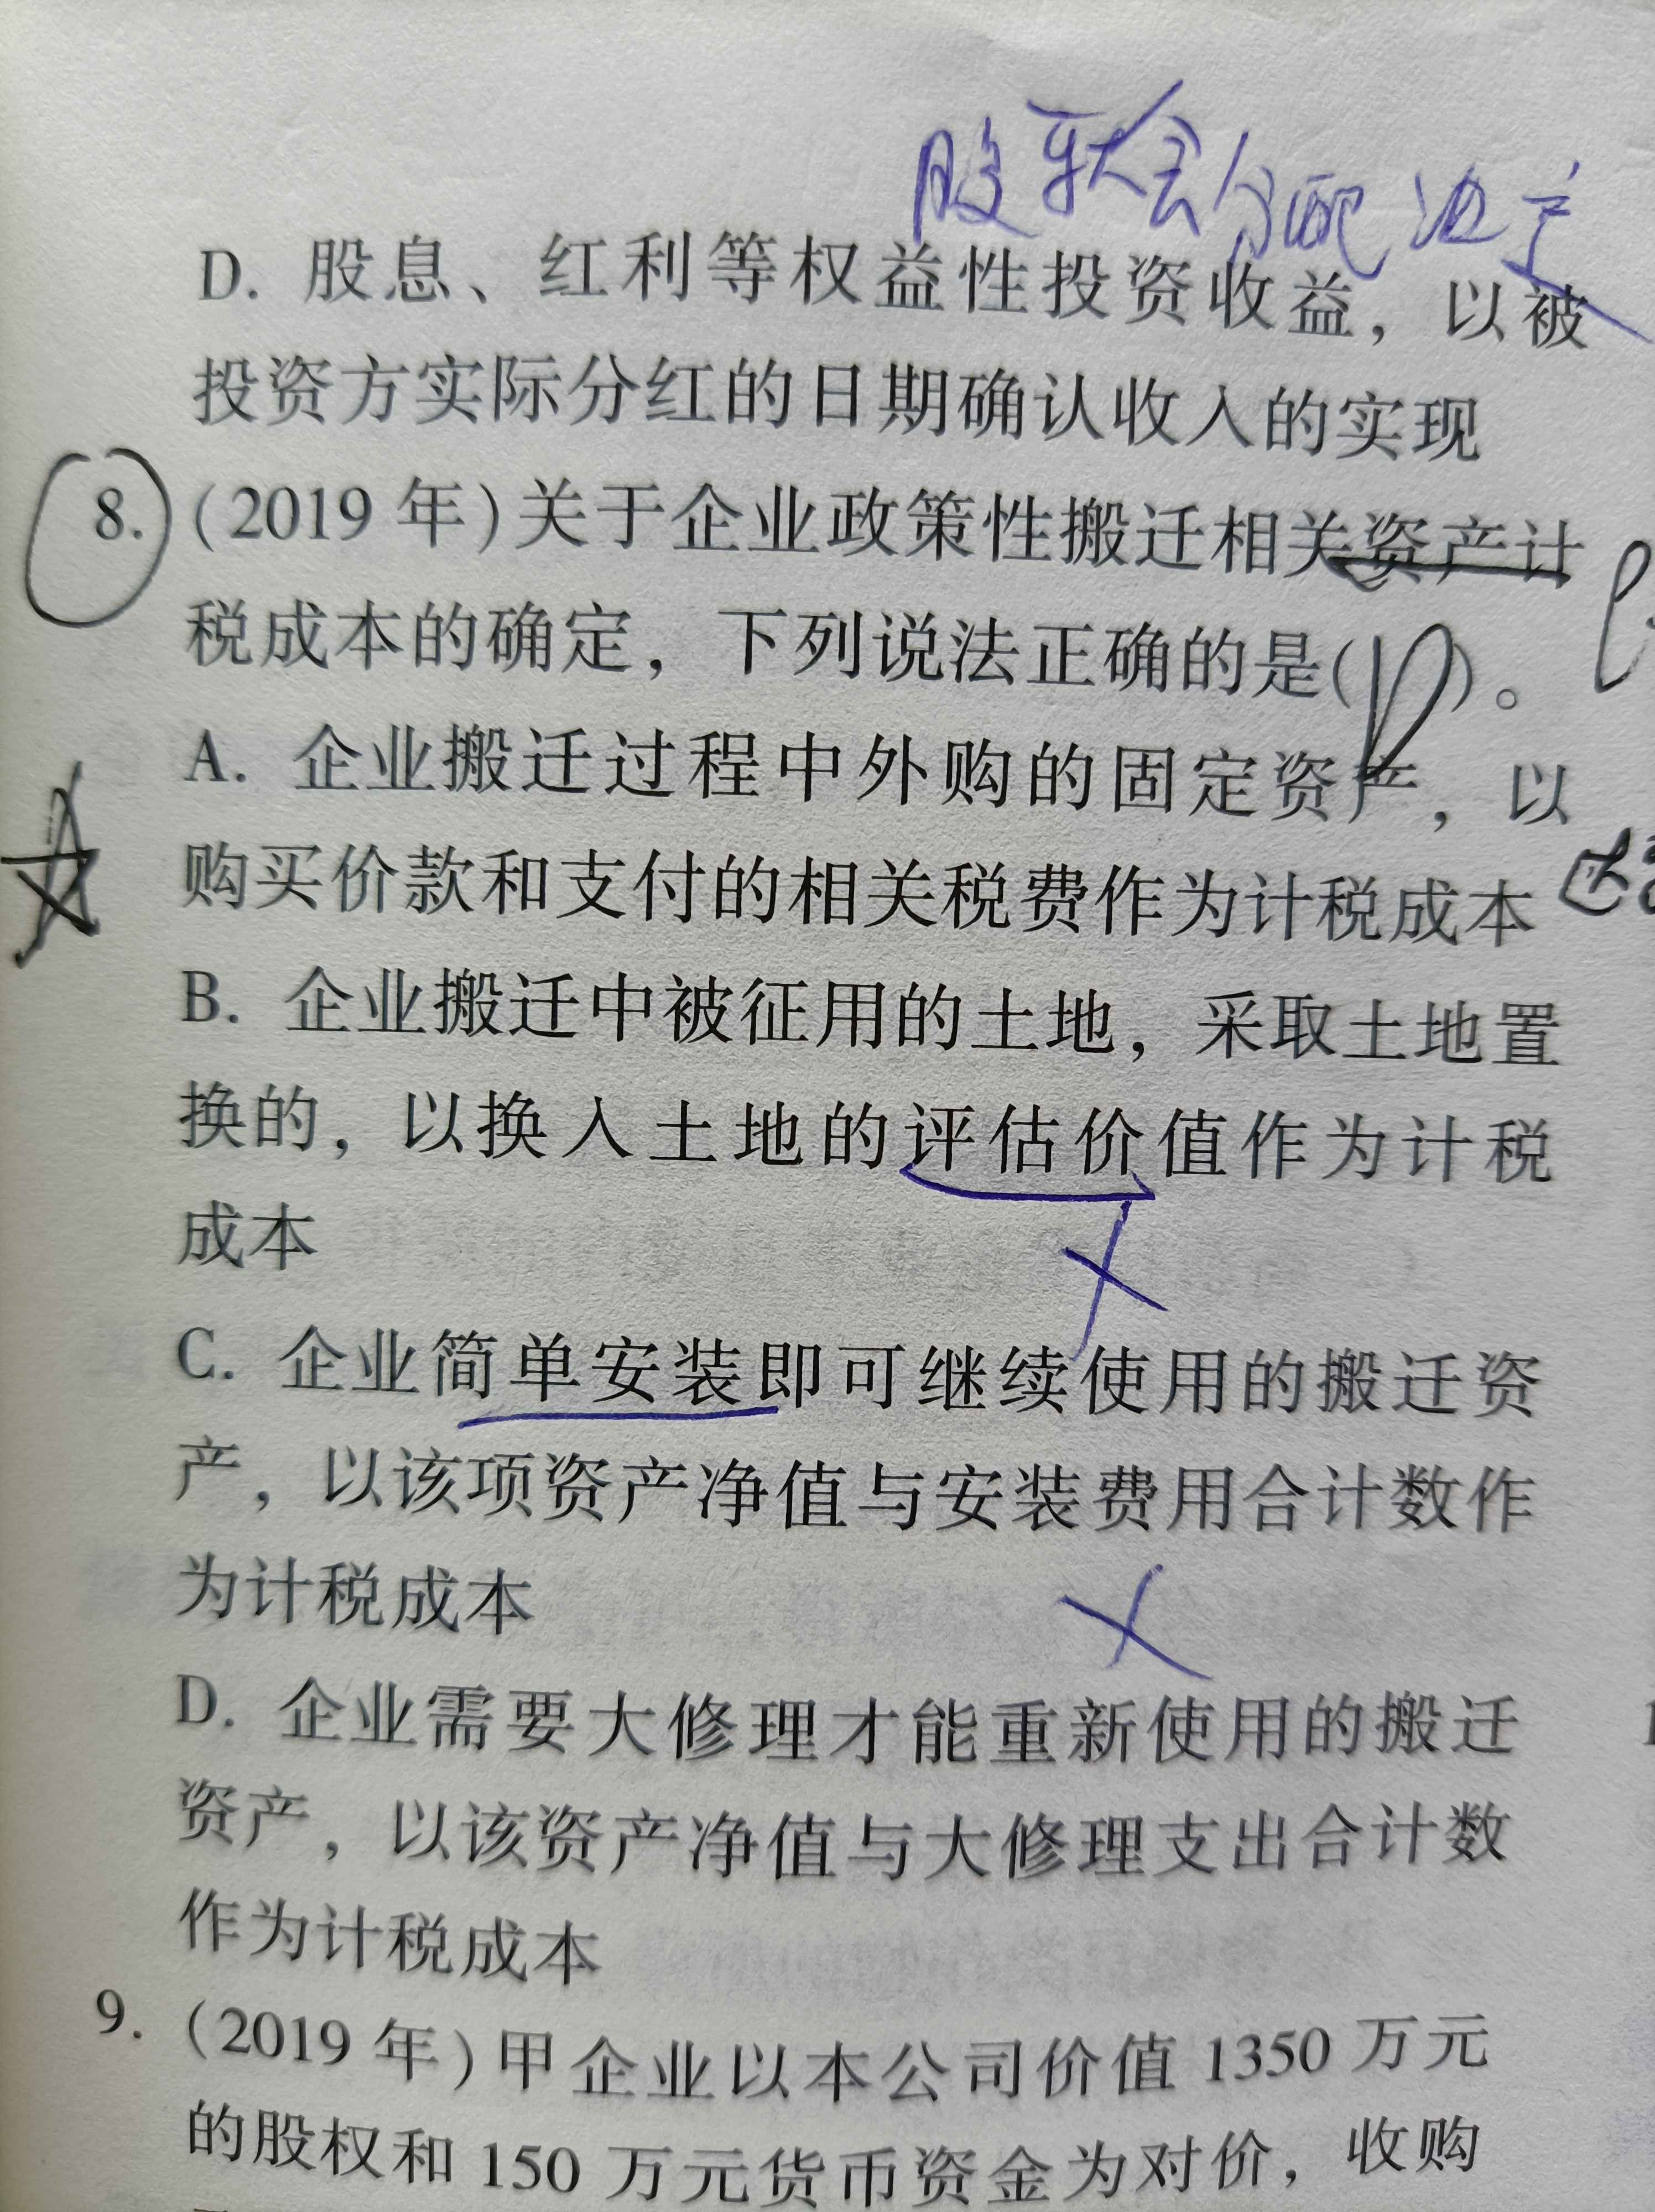 股东大会分配决定
D. 股息、红利等权益性投资收益，以被
投资方实际分红的日期确认收入的实现
8. (2019 年)关于企业政策性搬迁相关资产计
税成本的确定，下列说法正确的是( )。
A. 企业搬迁过程中外购的固定资产，以
购买价款和支付的相关税费作为计税成本
B. 企业搬迁中被征用的土地，采取土地置
换的，以换入土地的评估价值作为计税
成本
C. 企业简单安装即可继续使用的搬迁资
产，以该项资产净值与安装费用合计数作
为计税成本
D. 企业需要大修理才能重新使用的搬迁
资产，以该资产净值与大修理支出合计数
作为计税成本
9. (2019 年)甲企业以本公司价值 1350 万元
的股权和 150 万元货币资金为对价，收购